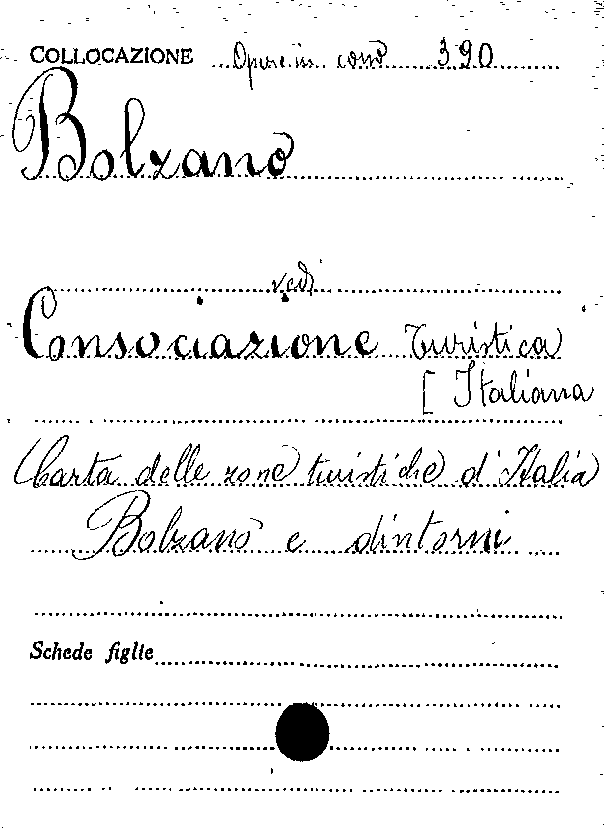 COLLOCAZIONE Opere in cons 390
Bolzano
vedi
Consociazione Turistica
[ Italiana
Carta delle zone turistiche d'Italia
Bolzano e dintorni
Schede figlie